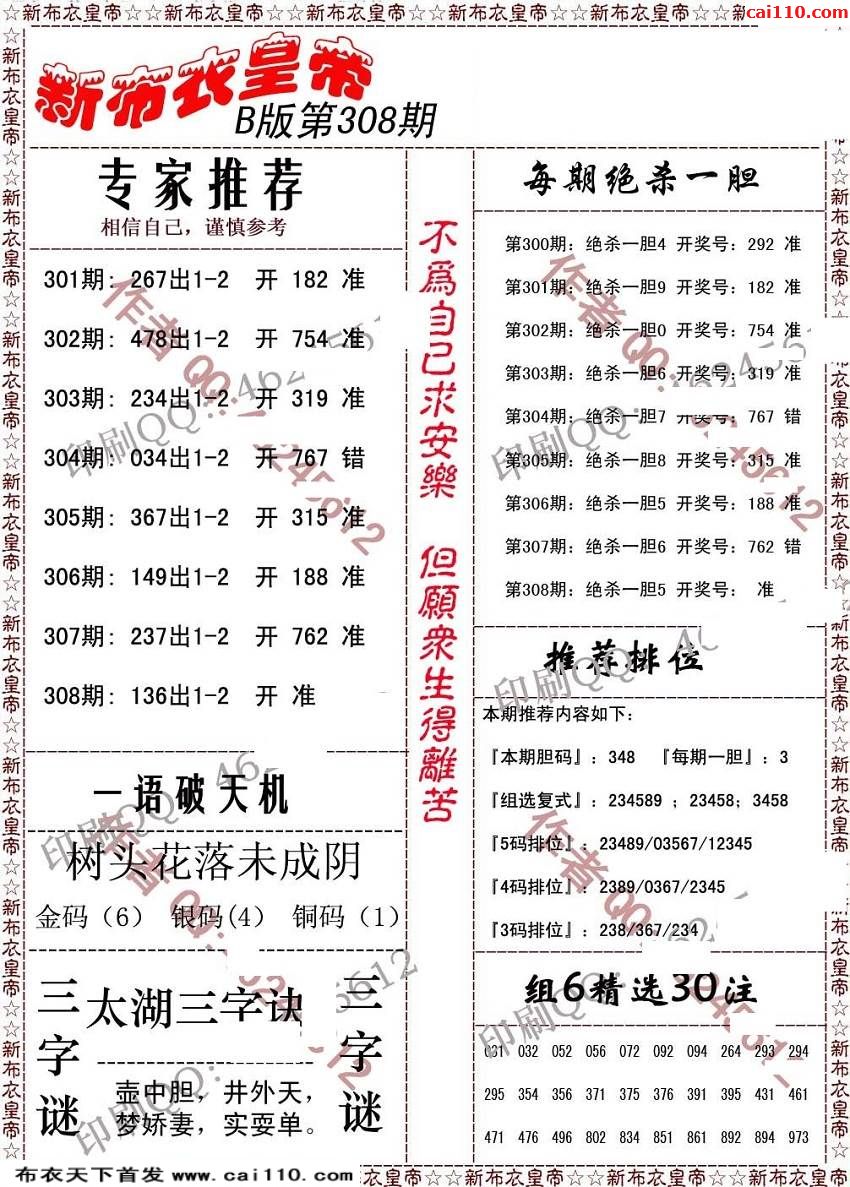 ☆☆新布衣皇帝☆☆新布衣皇帝☆☆新布衣皇帝☆☆新布衣皇帝☆☆新布衣皇帝☆☆新
cai110.com
新布衣皇帝
B版第308期
专家推荐
相信自己，谨慎参考
301期: 267出1-2 开 182 准
302期: 478出1-2 开 754 准
303期: 234出1-2 开 319 准
304期: 034出1-2 开 767 错
305期: 367出1-2 开 315 准
306期: 149出1-2 开 188 准
307期: 237出1-2 开 762 准
308期: 136出1-2 开 准
一语破天机
树头花落未成阴
金码（6） 银码(4) 铜码（1）
三字谜
太湖三字诀
壶中胆，井外天，
梦娇妻，实耍单。
三字谜
不為自己求安樂 但願衆生得離苦
每期绝杀一胆
第300期: 绝杀一胆4 开奖号: 292 准
第301期: 绝杀一胆9 开奖号: 182 准
第302期: 绝杀一胆0 开奖号: 754 准
第303期: 绝杀一胆6 开奖号: 319 准
第304期: 绝杀一胆7 开奖号: 767 错
第305期: 绝杀一胆8 开奖号: 315 准
第306期: 绝杀一胆5 开奖号: 188 准
第307期: 绝杀一胆6 开奖号: 762 错
第308期: 绝杀一胆5 开奖号: 准
推荐排位
本期推荐内容如下:
『本期胆码』: 348 『每期一胆』: 3
『组选复式』: 234589 ; 23458; 3458
『5码排位』: 23489/03567/12345
『4码排位』: 2389/0367/2345
『3码排位』: 238/367/234
组6精选30注
031 032 052 056 072 092 094 264 293 294
295 354 356 371 375 376 391 395 431 461
471 476 496 802 834 851 861 892 894 973
布衣天下首发 www.cai110.com
新布衣皇帝☆☆新布衣皇帝☆☆新布衣皇帝☆☆新布衣皇帝